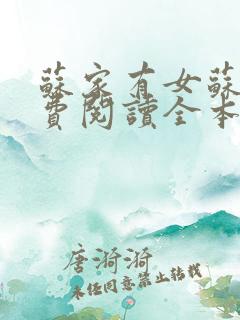 蘇家有女蘇
費閱讀全本
唐漪漪
未经同意禁止转载